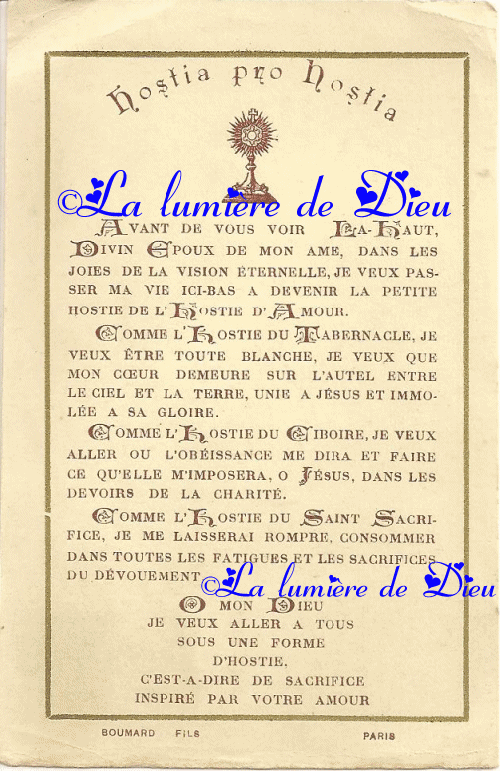 Hostia pro Hostia
©La lumière de Dieu
AVANT DE VOUS VOIR LA-HAUT,
DIVIN EPOUX DE MON AME, DANS LES
JOIES DE LA VISION ÉTERNELLE, JE VEUX PAS-
SER MA VIE ICI-BAS A DEVENIR LA PETITE
HOSTIE DE L'HOSTIE D'AMOUR.
COMME L'HOSTIE DU TABERNACLE, JE
VEUX ÊTRE TOUTE BLANCHE, JE VEUX QUE
MON CŒUR DEMEURE SUR L'AUTEL ENTRE
LE CIEL ET LA TERRE, UNIE A JÉSUS ET IMMO-
LÉE A SA GLOIRE.
COMME L'HOSTIE DU CIBOIRE, JE VEUX
ALLER OU L'OBÉISSANCE ME DIRA ET FAIRE
CE QU'ELLE M'IMPOSERA, O JÉSUS, DANS LES
DEVOIRS DE LA CHARITÉ.
COMME L'HOSTIE DU SAINT SACRI-
FICE, JE ME LAISSERAI ROMPRE, CONSOMMER
DANS TOUTES LES FATIGUES ET LES SACRIFICES
DU DÉVOUEMENT
©La lumière de Dieu
O MON DIEU
JE VEUX ALLER A TOUS
SOUS UNE FORME
D'HOSTIE,
C'EST-A-DIRE DE SACRIFICE
INSPIRÉ PAR VOTRE AMOUR
BOUMARD FILS PARIS